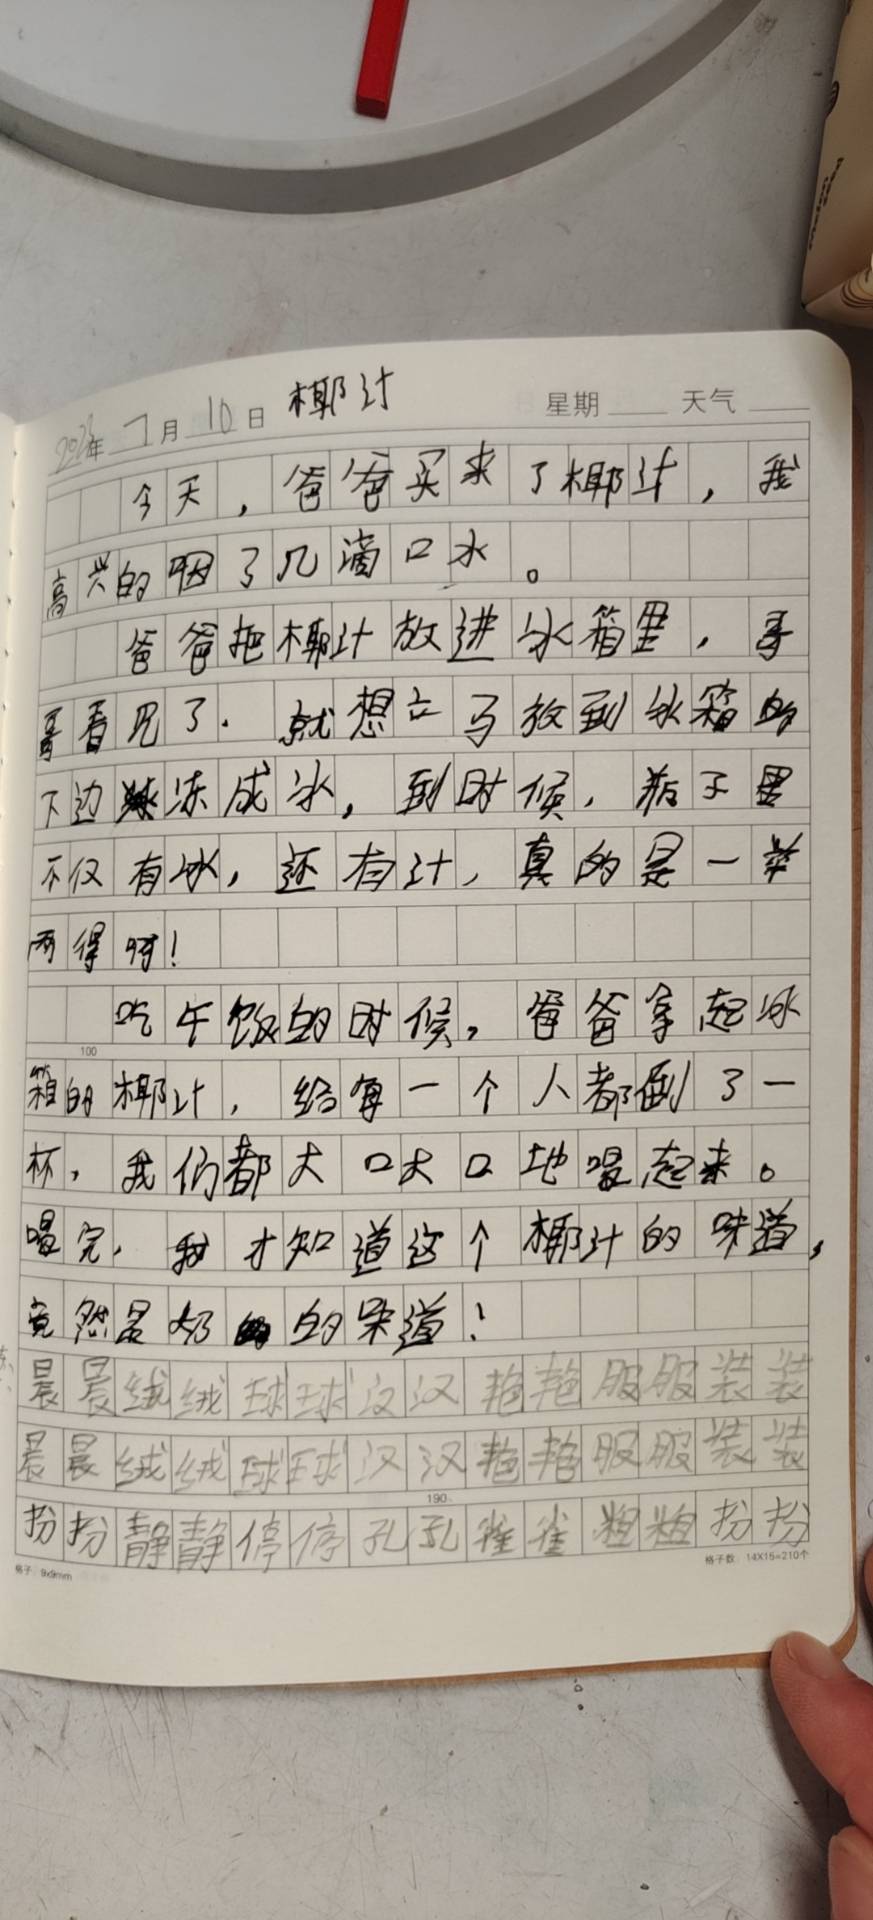 2023年 7月 10日 椰汁 星期 天气
今天，爸爸买来了椰汁，我
高兴的咽了几滴口水。
爸爸把椰汁放进冰箱里，哥
哥看见了．就想立马放到冰箱的
下边冻成冰，到时候，瓶子里
不仅有冰，还有汁，真的是一举
两得啊！
吃午饭的时候，爸爸拿起冰
100
箱的椰汁，给每一个人都倒了一
杯，我们都大口大口地喝起来。
喝完，我才知道这个椰汁的味道，
竟然是奶的味道！
晨晨绒绒球球汉汉艳艳服服装装
晨晨绒绒球球汉汉艳艳服服装装
190
扮扮静静停停孔孔雀雀粗粗扮扮
格子：9x9mm 格子数：14X15=210个